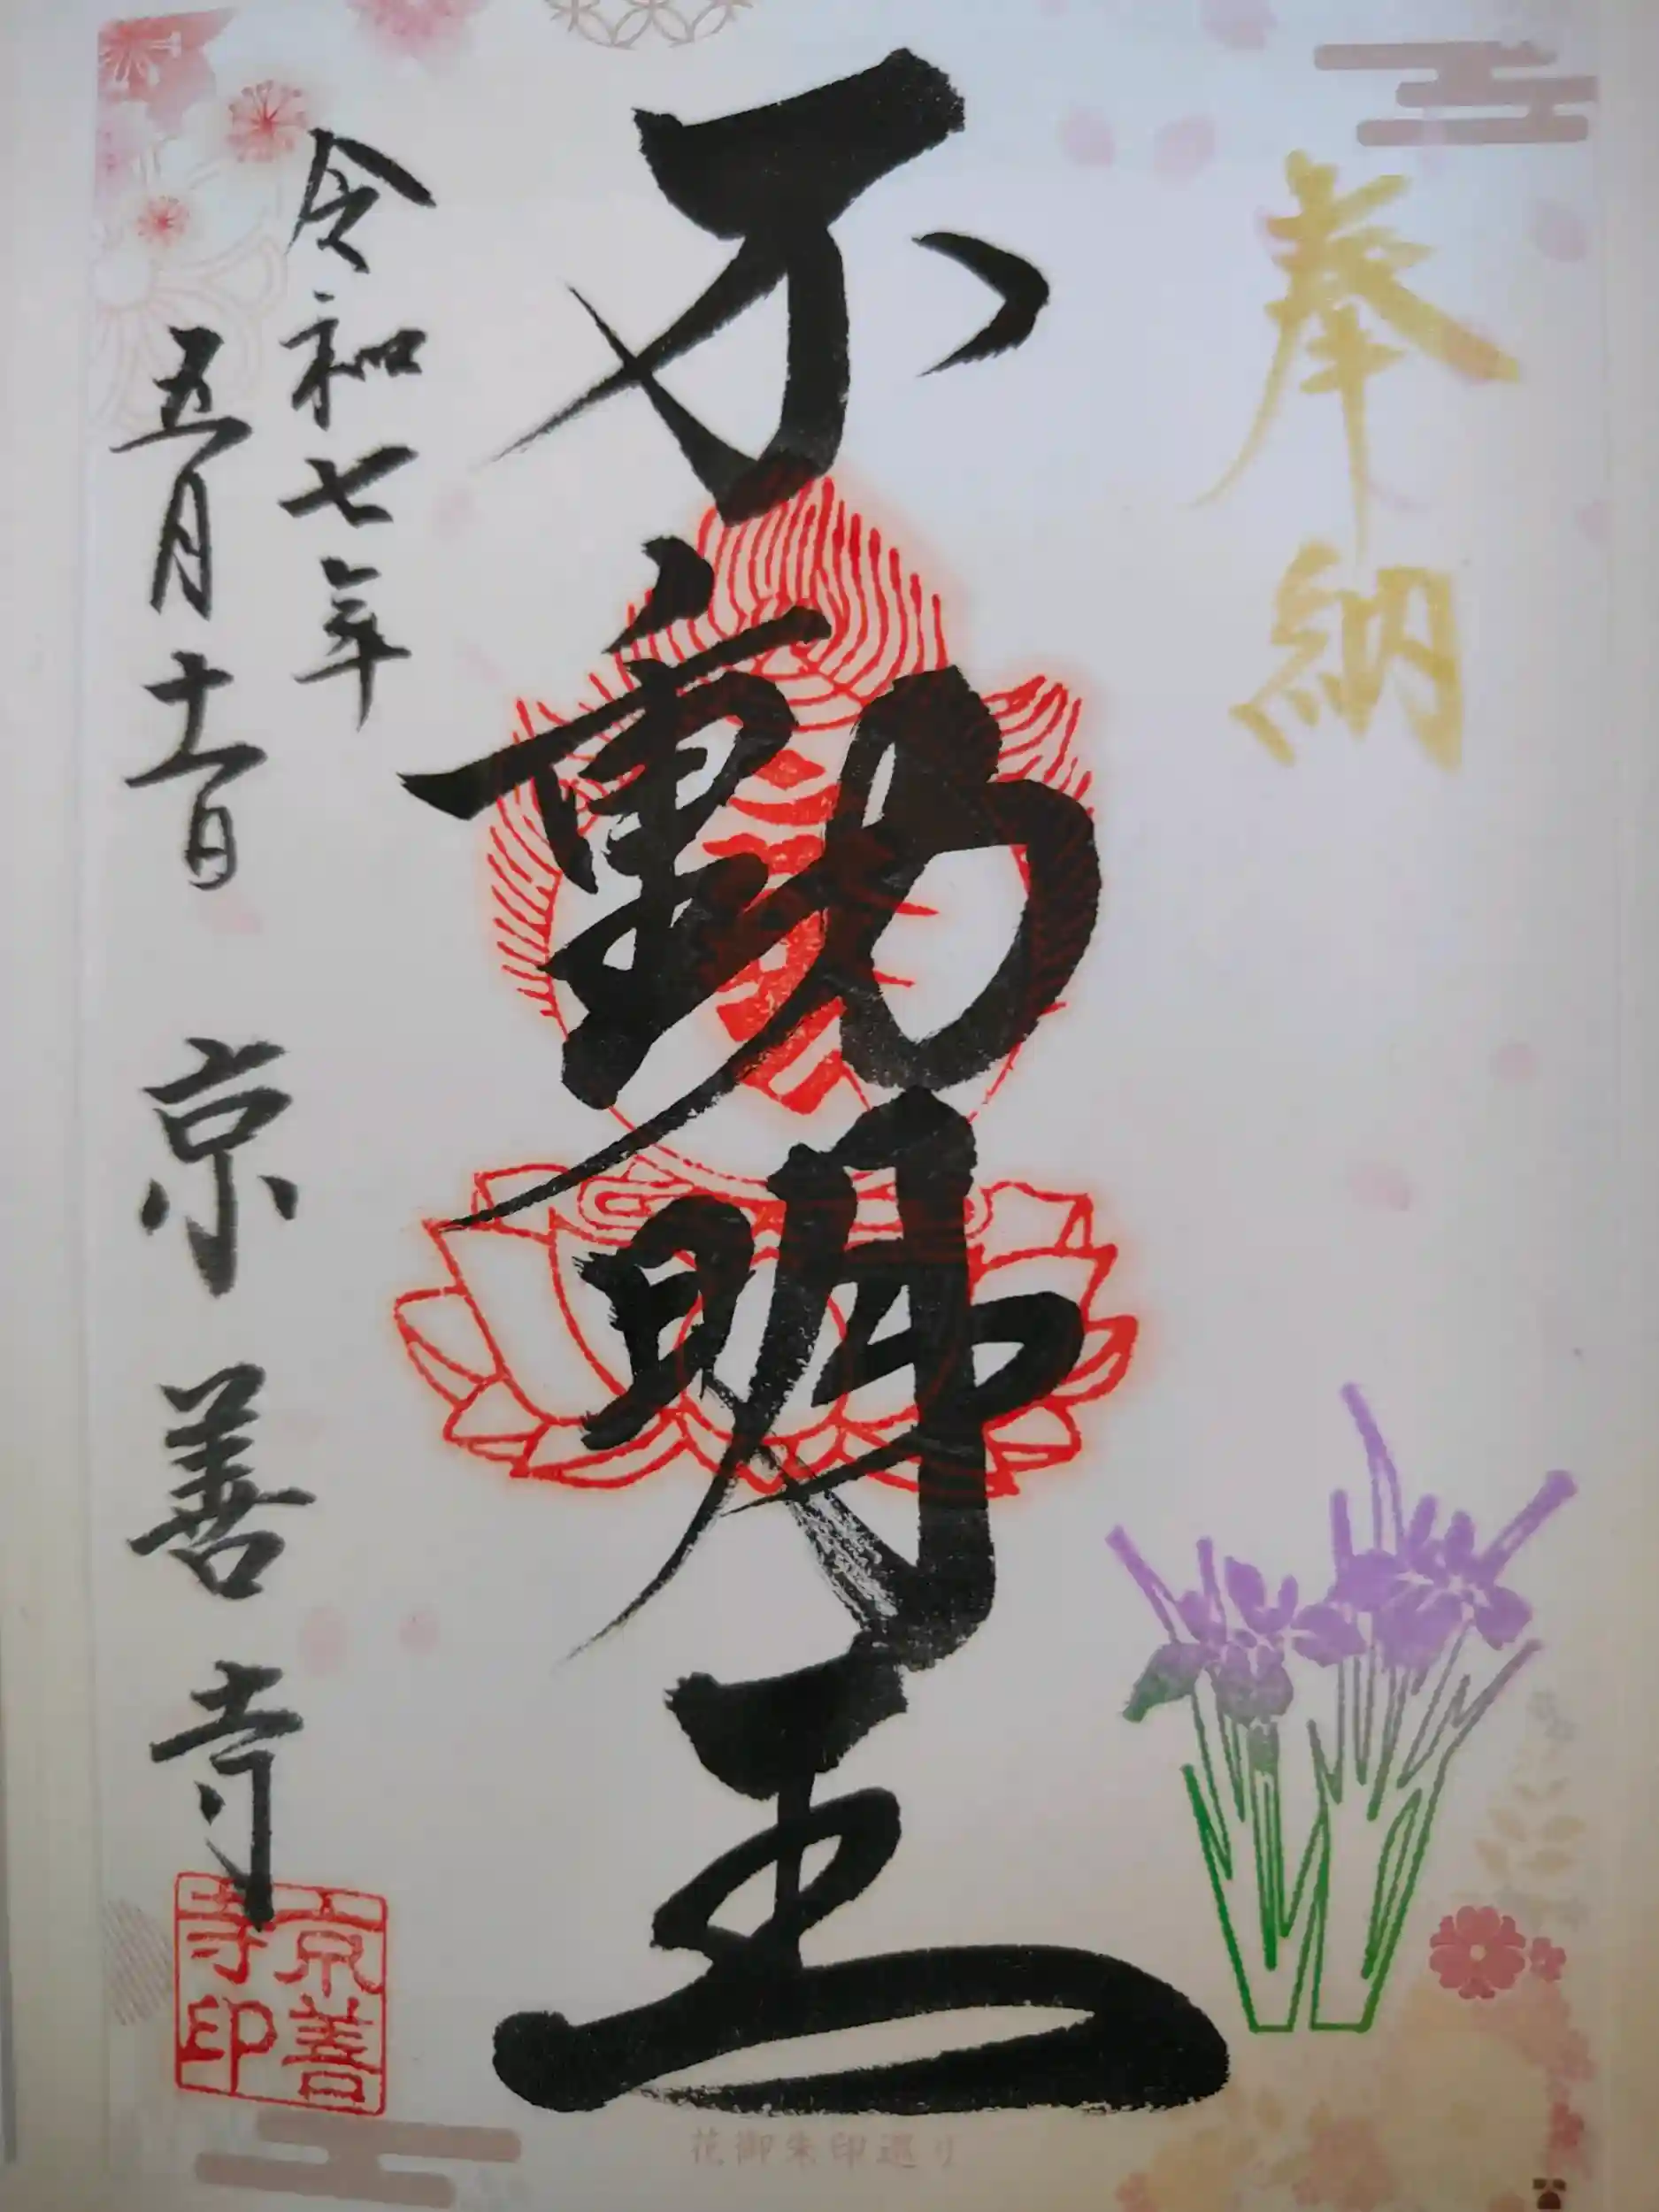 奉納
不動明王
令和七年
五月十一日
京善寺
京善
寺印
花御朱印巡り